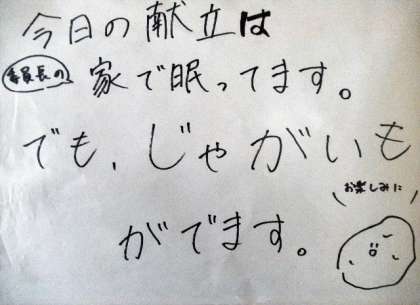 今日の献立は
委員長の 家で眠ってます。
でも、じゃがいも
お楽しみに
がでます。